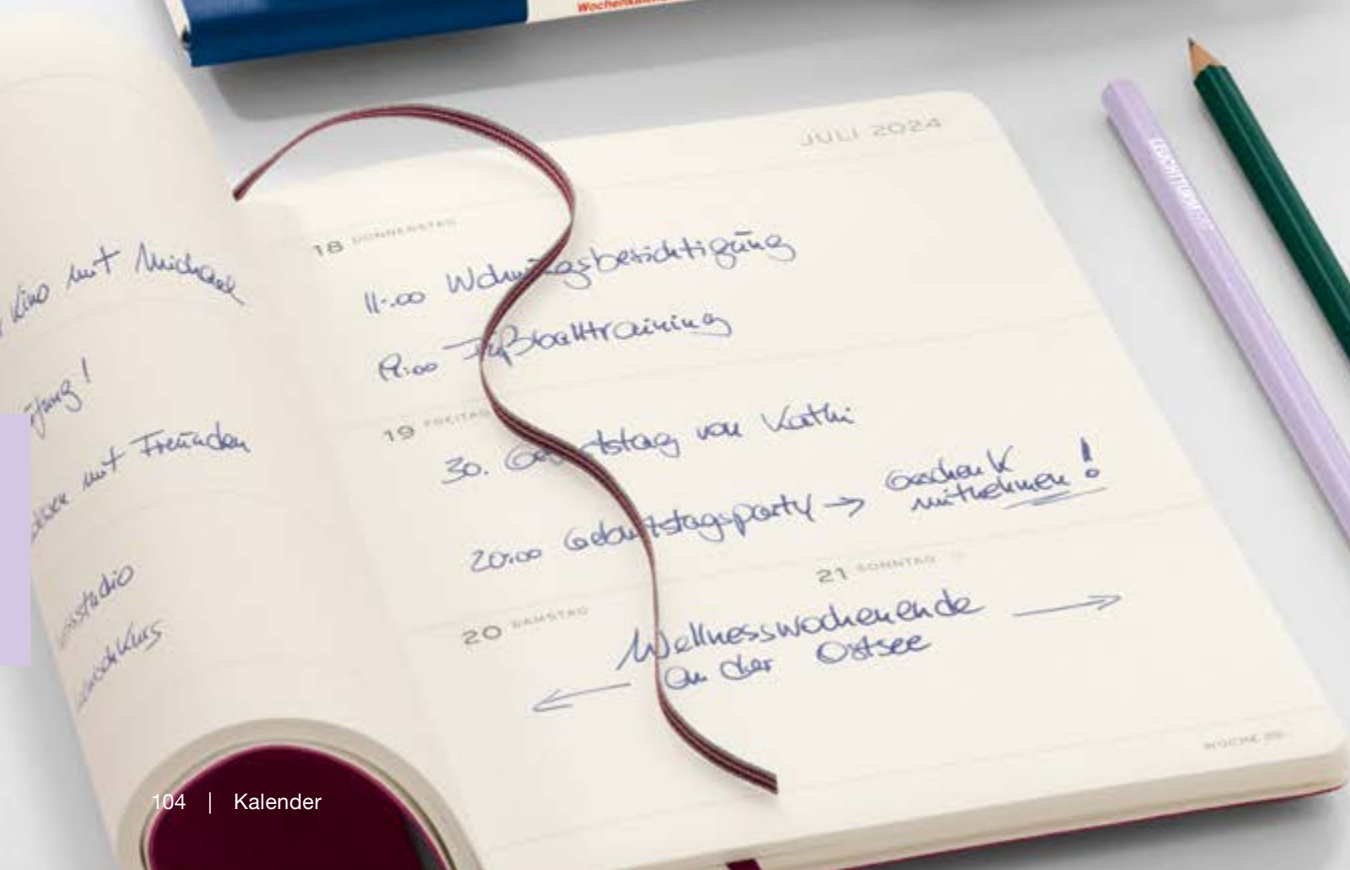 Wochenkalender
LEUCHTTURM
Kino mit Michael
mit Freunden
JULI 2024
18 DONNERSTAG
11:00 Wohnungsbesichtigung
19:00 Fußballtraining
19 FREITAG
30. Geburtstag von Kathi
20:00 Geburtstagsparty → Geschenk
mitnehmen!
20 SAMSTAG
21 SONNTAG
Wellnesswochenende
an der Ostsee
WOCHE
104 | Kalender